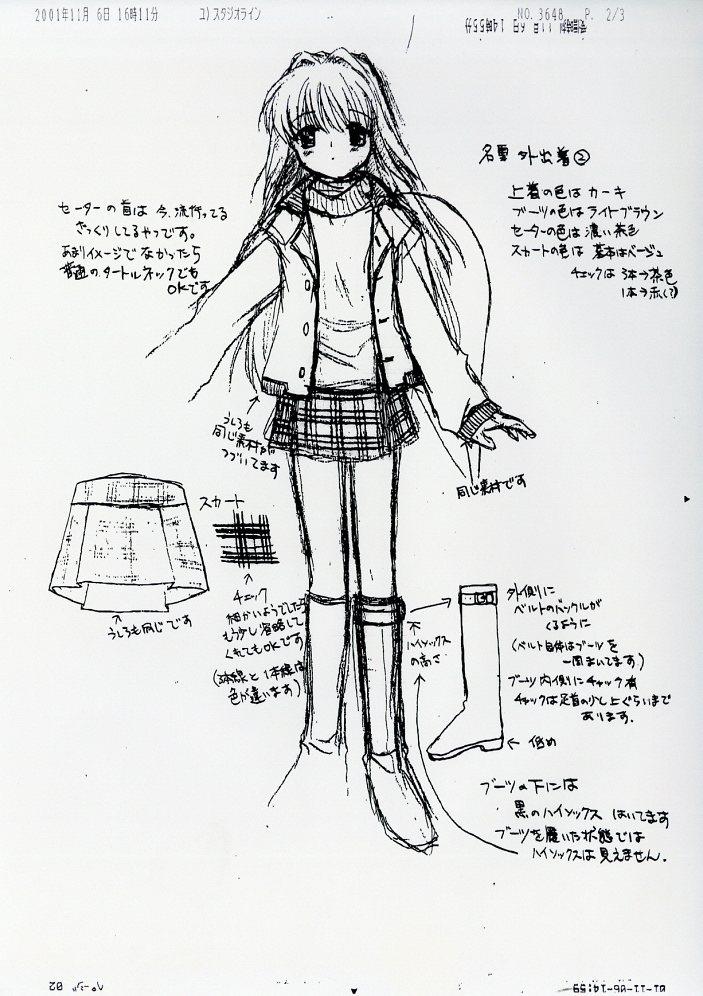 2001年11月 6日 16時11分 ユ)スタジオライン NO. 3648 P. 2/3
名雪 外出着②
上着の色は カーキ
ブーツの色は ライトブラウン
セーターの色は 濃い茶色
スカートの色は 基本はベージュ
チェックは 3本→茶色
1本→赤(?)
セーターの首は 今、流行ってる
ざっくりしてるやつです。
あまりイメージでなかったら
普通の、タートルネックでも
OKです
うしろも
同じ素材が
つづいてます
同じ素材です
スカート
うしろも同じです
チェック
細かいようでしたら
もう少し省略して
くれてもOKです
(3本線と1本線は
色が違います)
ハイソックス
の高さ
外側に
ベルトのバックルが
くるように
(ベルト自体はブーツを
一周まいてます)
ブーツ内側にチャック有
チャックは足首の少し上ぐらいまで
あります.
低め
ブーツの下には
黒のハイソックス はいてます
ブーツを履いた状態では
ハイソックスは見えません.
ページ 02
01-11-06-14:59